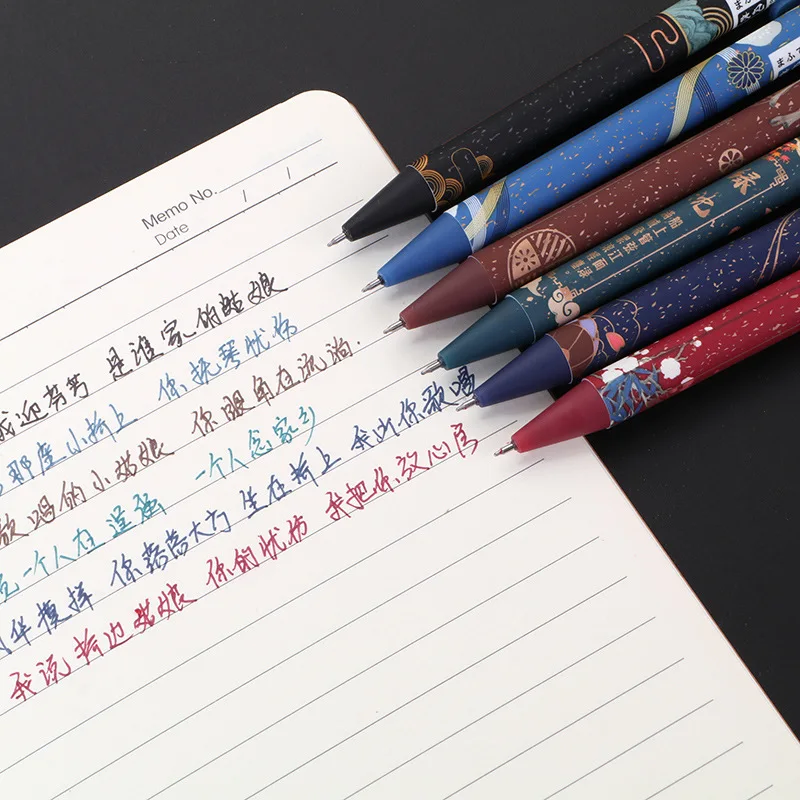 Memo No.
/ /
Date
我迎芬芳 是谁家的姑娘
那座小桥上 你抚琴忧伤
歌唱的小姑娘 你眼角在流淌.
一个人在逞强 一个人念家乡
华模样 你落落大方 坐在桥上 我听你歌唱
我说桥边姑娘 你的忧伤 我把你放心房
船上管弦江面